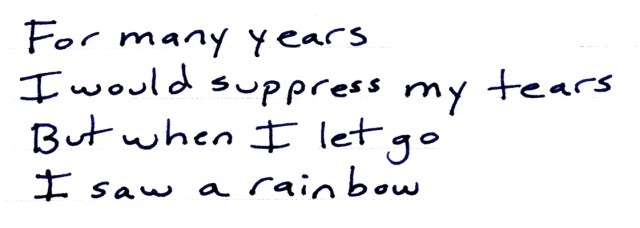 For many years
I would suppress my tears
But when I let go
I saw a rainbow